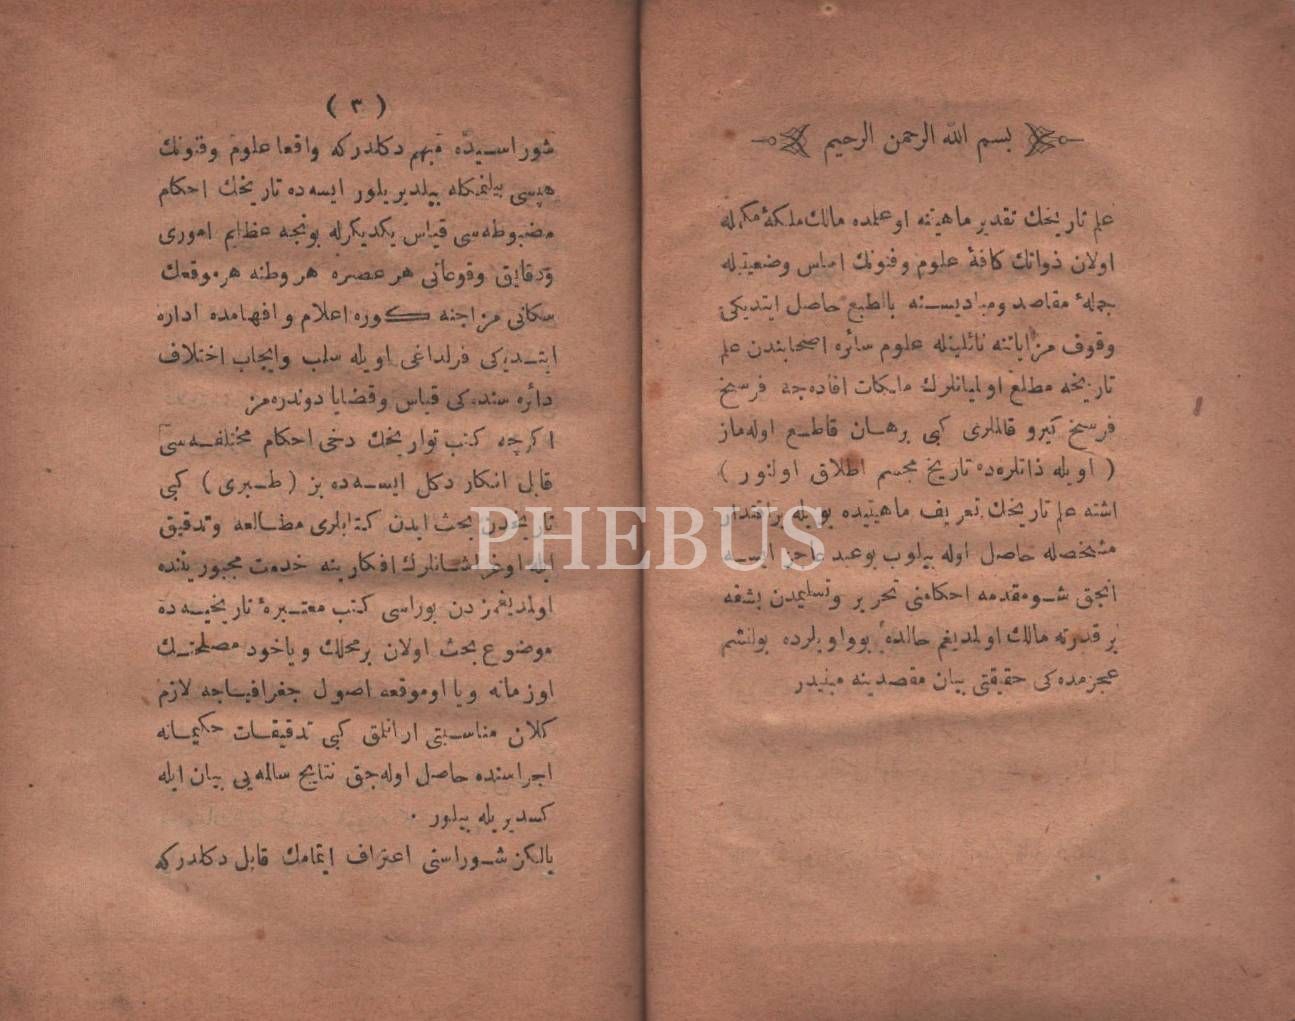 بسم الله الرحمن الرحيم
علم تاريخك تقدير ماهيتنه اوعلمده مالك ملكهٔ مكمله
اولان ذواتك كافهٔ علوم وفنونك اساس وضعيتيله
جملهٔ مقاصد ومباديسنه بالطبع حاصل ايتديكى
وقوف مزاياتنه نائليتله علوم سائره اصحابندن علم
تاريخه مطلع اولميانلرك مايكات افاده جه فرسخ
فرسخ كيرو قالملرى كبى برهان قاطع اوله ماز
( اويله ذاتلره ده تاريخ مجسم اطلاق اولنور )
اشته علم تاريخك تعريف ماهيتيده بويله براقتدار
مشخصله حاصل اوله بيلوب بوعبد عاجز ايسه
انجق شومقدمه احكامنى تحرير وتسليمدن بشقه
بر قدرته مالك اولمديغم حالده بوواديلرده بولنشم
عجزمده كى حقيقتى بيان مقصدينه مبنيدر
( ٣ )
شوراسيده مبهم دكلدركه واقعا علوم وفنونك
هپسى بيلنمكله بيلديريلور ايسه ده تاريخك احكام
مضبوطه سى قياس يكديكرله بونجه عظايم امورى
ودقايق وقوعاتى هر عصره هر وطنه هرموقعك
سكانى مزاجنه كوره اعلام وافهامده اداره
ايتديكى فرلداغى اويله سلب وايجاب اختلاف
دائره سنده كى قياس وقضايا دوندره مز
اكرچه كتب تواريخك دخى احكام مختلفه سى
قابل انكار دكل ايسه ده بز ( طبرى ) كبى
تاريخدن بحث ايدن كتابلرى مطالعه وتدقيق
ايله اوغراشانلرك افكارينه خدمت مجبوريتنده
اولمديغمزدن بوراسى كتب معتبرهٔ تاريخيه ده
موضوع بحث اولان برمحلك وياخود مصلحتك
اوزمانه ويا اوموقعه اصول جغرافياجه لازم
كلان مناسبتى ارانلق كبى تدقيقات حكيمانه
اجراسنده حاصل اوله جق نتايج سالمه يى بيان ايله
كسديريله بيلور ٠
يالكز شوراسنى اعتراف ايتمامك قابل دكلدركه
PHEBUS